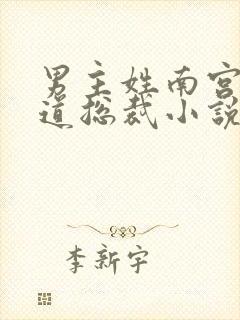 男主姓南宫
道总裁小說
李新宇